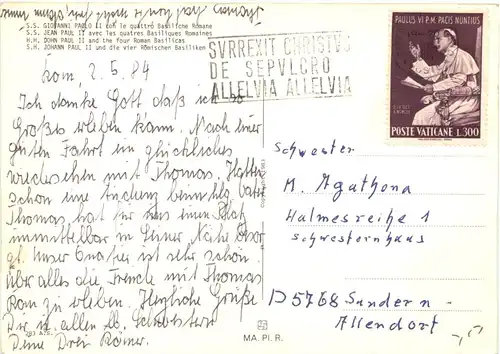 S.S. GIOVANNI PAOLO II con le quattro Basiliche Romane
S.S. JEAN PAUL II avec les quatres Basiliques Romaines
H.H. JOHN PAUL II and the four Roman Basilicas
S.H. JOHANN PAUL II und die vier Römischen Basiliken
SVRREXIT CHRISTVS
DE SEPVLCRO
ALLELVIA ALLELVIA
PAULUS VI P.M. PACIS NUNTIUS
POSTE VATICANE L.300
Rom, 2.5.84
Ich danke Gott daß ich so
Großes erleben kann. Nach einer
guten Fahrt ein glückliches
wiedersehen mit Thomas. Hatten
schon eine Audienz beim hlg. Vater
Thomas hat für uns einen Platz
unmittelbar in Seiner Nähe besor
gt. Unser Quartier ist sehr schön
über alles die Freude mit Thomas
Rom zu erleben. Herzliche Grüße
Dir u. allen lb. Schwestern
Deine Drei Römer.
Schwester
M. Agathona
Halmesreihe 1
Schwesternhaus
D 5768 Sundern-
Allendorf
MA. PI. R.